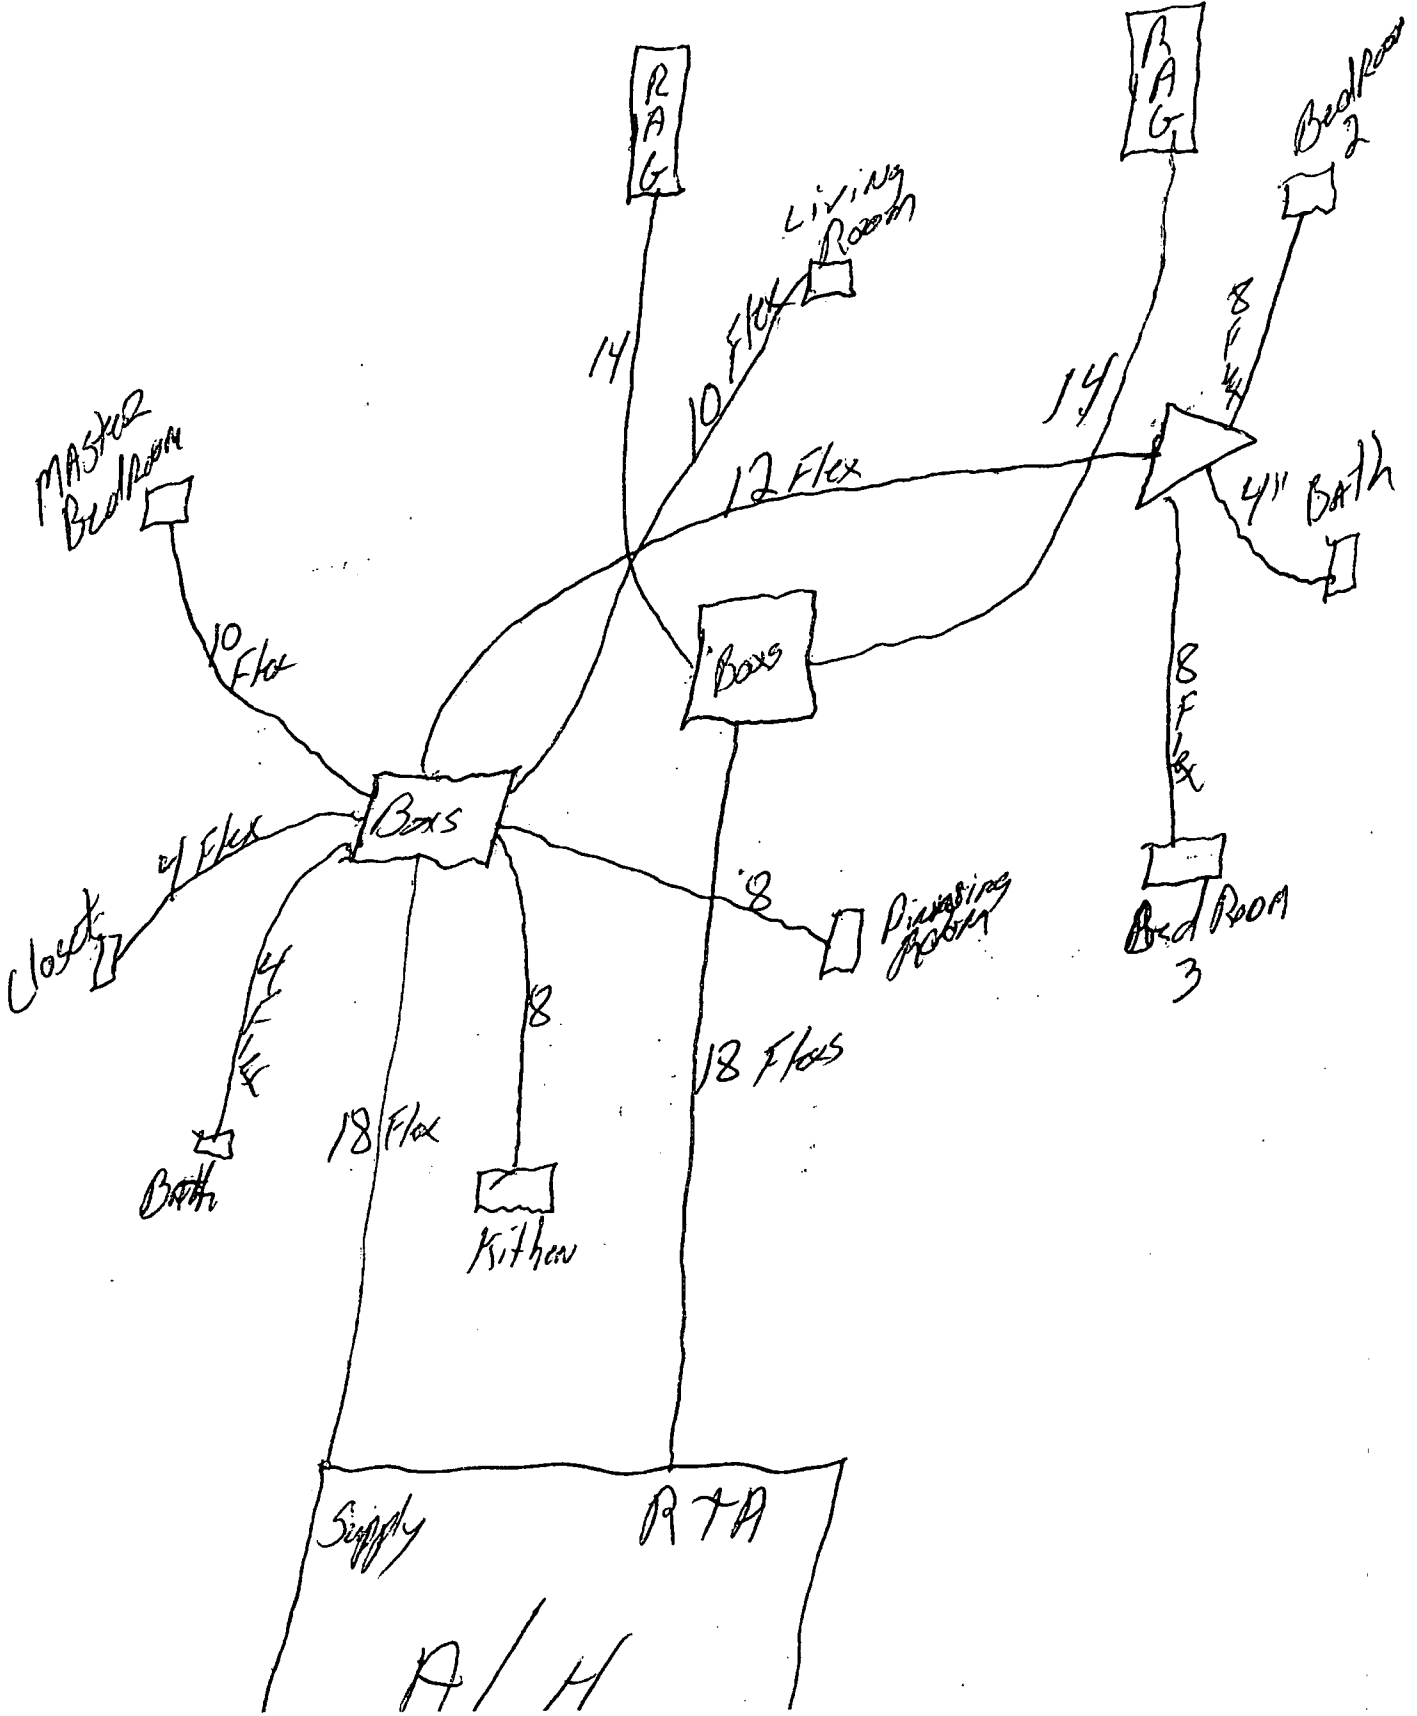 R
A
G
R
A
G
BedRoom
2
Living
Room
8
F
14
10 Flex
14
12 Flex
Master
BedRoom
4" Bath
10
Flex
Boxs
8
F
l
x
Boxs
4 Flex
8
Closet
Room
Bed Room
3
4
F
8
18 Flexs
18 Flex
Bath
Kithen
Supply
R T A
A/H